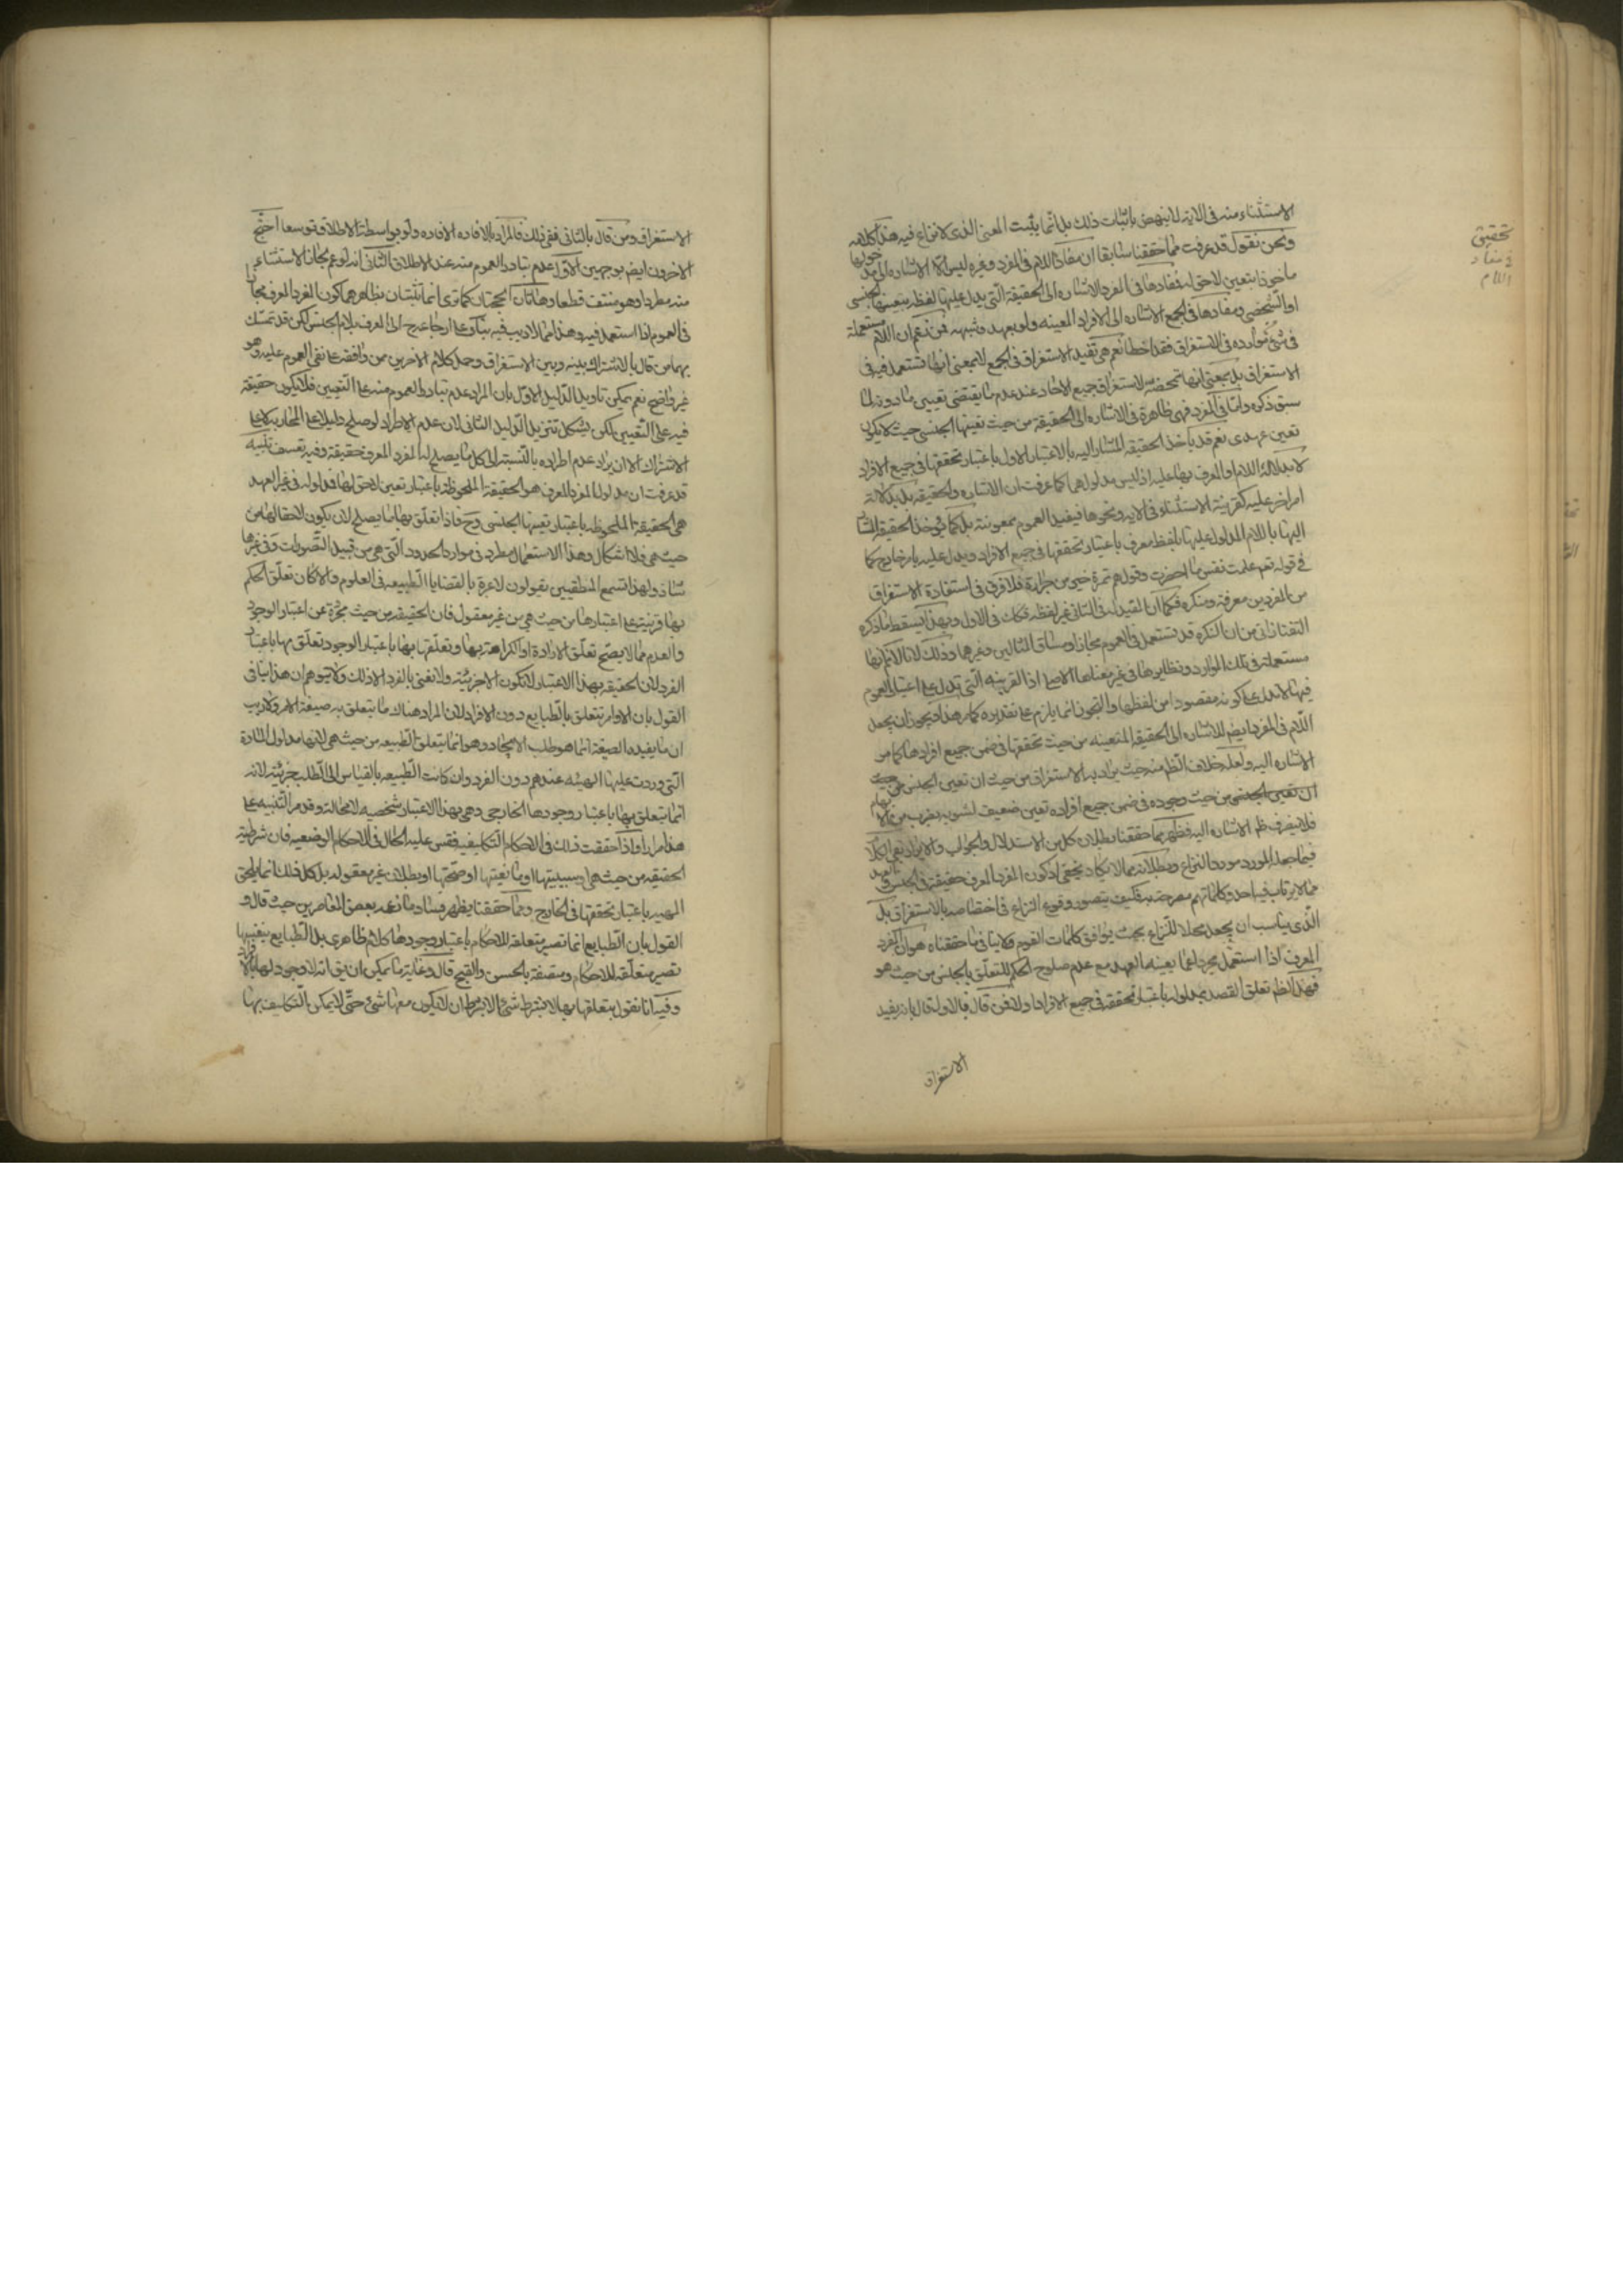 الاستثناء منه فى الاية لا ينهض باثبات ذلك بل انما يثبت المعنى الذى لا نزاع فيه هذا كلامه
ونحن نقول قد عرفت مما حققنا سابقا ان مفاد اللام فى المفرد وغيره ليس الا الاشارة الى مدخولها
ماخوذا بتعين لاحق له فمفادها فى المفرد الاشاره الى الحقيقة التى يدل عليها لفظه بتعينها الجنسى
او الشخصى ومفادها فى الجمع الاشارة الى الافراد المعينه ولو بعهد وشبهه فمن زعم ان اللام مستعملة
فى شئ من موارده فى الاستغراق فقد اخطا نعم هى تفيد الاستغراق فى الجمع لا بمعنى انها تستعمل فيه فى
الاستغراق بل بمعنى انها لاستغراق جميع الاحاد عند عدم ما يقتضى تعيين ما دونه لما
سبق ذكره واما فى المفرد فهى ظاهرة فى الاشارة الى الحقيقة من حيث تعينها الجنسى حيث لا يكون
تعين عهدى نعم قد ياخذ الحقيقة المشار اليه بالاعتبار الاول باعتبار تحققها فى جميع الافراد
لا بدلالة اللام او المعرف بها عليه اذ ليس مدلولهما كما عرفت ان الاشاره والحقيقة بل بدلالة
امر اخر عليه كقرينة الاستثناء فى الايه ونحوها فيفيد العموم بمعونته بل كما يؤخذ الحقيقة المشار
اليها باللام المدلول عليها بلفظ معرف باعتبار تحققها فى جميع الافراد ويدل عليه بامر خارج كما
فى قوله تعم علمت نفس ما احضرت وقولهم تمرة خير من جرادة فلا فرق فى استفادة الاستغراق
من المفردين معرفه ومنكره فكما ان المفيد له فى الثانى غير لفظه فكك فى الاول وبهذا يسقط ما ذكره
التفتازانى من ان النكره قد تستعمل فى العموم مجازا وساق المثالين وغيرهما وذلك لانا لا نم انها
مستعملة فى تلك الموارد ونظايرها فى غير معناها الاصلى اذ القرينه التى تدل على اعتبار العموم
فيها لا تدل على كونه مقصودا من لفظها والتجوز انما يلزم على تقديره كما مر هذا ويجوز ان يجعل
اللام فى المفرد ايضا للاشاره الى الحقيقة المتعينه من حيث تحققها فى ضمن جميع افرادها كما مر
الاشاره اليه ولعله خلاف الظ منه حيث يراد به الاستغراق من حيث ان تعين الجنس من حيث
ان تعين الجنس من حيث وجوده فى ضمن جميع افراده تعين ضعيف لشوبه بضرب من الابهام
فلا ينصرف ظ الاشاره اليه فظهر مما حققنا بطلان كل من الاستدلال والجواب والايراد بقى الكلام
فيما جعله المورد مورد النزاع وبطلانه مما لا يكاد يخفى اذ كون المفرد المعرف حقيقة فى الجنس
مما لا يرتاب فيه احد وكلماتهم مصرحة به فكيف يتصور وقوع النزاع فى اختصاصه بالاستغراق بل
الذى يناسب ان يجعل محلا للنزاع بحيث يوافق كلمات القوم ولا ينافى ما حققناه هو ان المفرد
المعرف اذا استعمل مجردا عما يعينه العهد مع عدم صلوح الحكم للتعلق بالجنس من حيث هو
فهل الظ تعلق القصد بمدلوله باعتبار تحققه فى جميع الافراد او لا فمن قال بالاول قال بانه يفيد
الاستغراق
تحقيق
فى مفاد
اللام
الاستغراق ومن قال بالثانى نفى ذلك فالمراد بالافاده الافاده ولو بواسطة الاطلاق توسعا احتج
الاخرون ايضا بوجهين الاول عدم تبادر العموم منه عند الاطلاق الثانى انه لو عم لجاز الاستثناء
منه مطردا وهو منتف قطعا وهاتان الحجتان كما ترى انما تثبتان بظاهرهما كون المفرد المعرف مجازا
فى العموم اذا استعمل فيه وهذا مما لا ريب فيه بناء على ارجاعه الى المعرف بلام الجنس لكن قد تمسك
بهما من قال بالاشتراك بينه وبين الاستغراق وحمل كلام الاخرين من وافقه على نفى العموم عليه وهو
غير واضح نعم يمكن تاويل الدليل الاول بان المراد عدم تبادر العموم منه على التعيين فلا يكون حقيقة
فيه على التعيين لكن يشكل تنزيل الدليل الثانى لان عدم الاطراد لو صلح دليلا على المجاز به لا على
الاشتراك الا ان يراد عدم اطراده بالنسبة الى كل ما يصلح له المفرد المعرف حقيقة وفيه تعسف تنبيه
قد عرفت ان مدلول المفرد المعرف هو الحقيقة الملحوظة باعتبار تعين لاحق لها فمدلوله فى غير العهد
هى الحقيقة الملحوظه باعتبار تعينها الجنسى وح فاذا تعلق بها ما يصلح لان يكون لاحقا لها من
حيث هى فلا اشكال وهذا الاستعمال مطرد فى موارد الحدود التى هى من قبيل التصورات وفى غيرها
شاذ ولهذا تسمع المنطقيين يقولون لا عبرة بالقضايا الطبيعيه فى العلوم والا كان تعلق الحكم
بها قرينة على اعتبارها من حيث هى من غير معقول فان الحقيقه من حيث هى مجردة عن اعتبار الوجود
والعدم مما لا يصح تعلق الارادة او الكراهة بها وتعلقها بها باعتبار الوجود تعلق بها باعتبار
الفرد لان الحقيقه بهذا الاعتبار لا تكون الا جزئية ولا نعنى بالفرد الا ذلك ولا يتوهم ان هذا ينافى
القول بان الاوامر تتعلق بالطبايع دون الافراد لان المراد هناك ما يتعلق به صيغة الامر ولا ريب
ان ما يفيده الصيغة انما هو طلب الايجاد وهو انما يتعلق الطبيعه من حيث هى لانها مدلول المادة
التى وردت عليها الهيئه عندهم دون الفرد وان كانت الطبيعه بالقياس الى الطلب جزئيته لانه
انما يتعلق بها باعتبار وجودها الخارجى وهى بهذا الاعتبار شخصيه لا محالة وقد مر التنبيه على
هذا مرارا واذا حققت ذلك فى الاحكام التكليفيه فقس عليه الحال فى الاحكام الوضعيه فان شرطية
الحقيقه من حيث هى او سببيتها او مانعيتها او صحتها او بطلان غير معقوله بل كل ذلك انما يلحق
المهيه باعتبار تحققها فى الخارج ومما حققنا يظهر فساد ما زعمه بعض المعاصرين حيث قال و
القول بان الطبايع انما تصير متعلقة للاحكام باعتبار وجودها كلام ظاهرى بل الطبايع بنفسها
تصير متعلقه للاحكام ومتصفة بالحسن والقبح قال وغاية ما يمكن ان يق انه لا وجود لها الا بالافراد
وفيه انا نقول بتعلقها بها لا بشرط شئ لا بشرط ان لا يكون معها شئ حتى لا يمكن التكليف بها